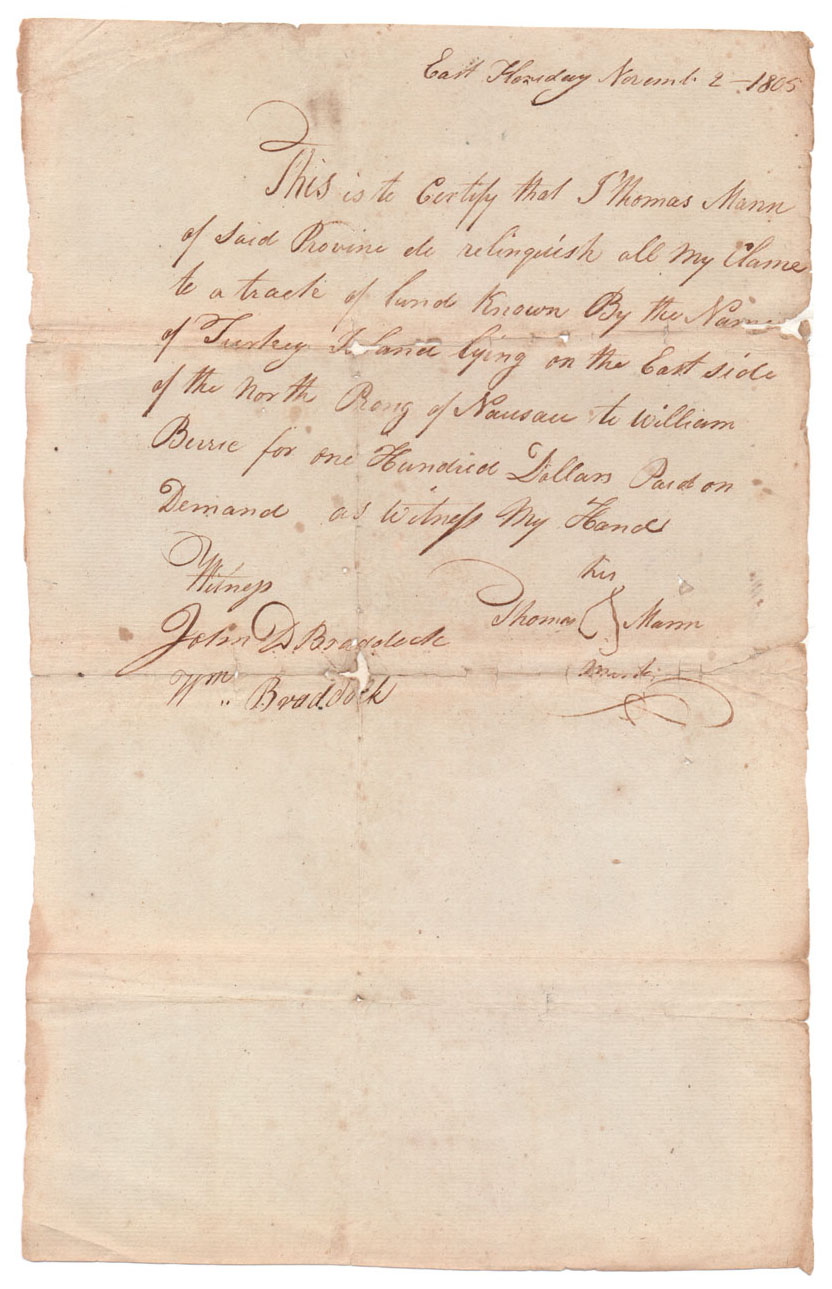 East Floriday Novemb. 2 - 1805
This is to Certify that I Thomas Mann
of Said Provine do relinquish all My Clame
to a track of land Known By the Name
of Turkey Island lying on the East side
of the North Prong of Nausau to William
Berrie for one Hundred Dollars Paid on
Demand as Witness My Hand
his
Witness
Thomas Mann
John D Braddock
mark
Wm Braddock